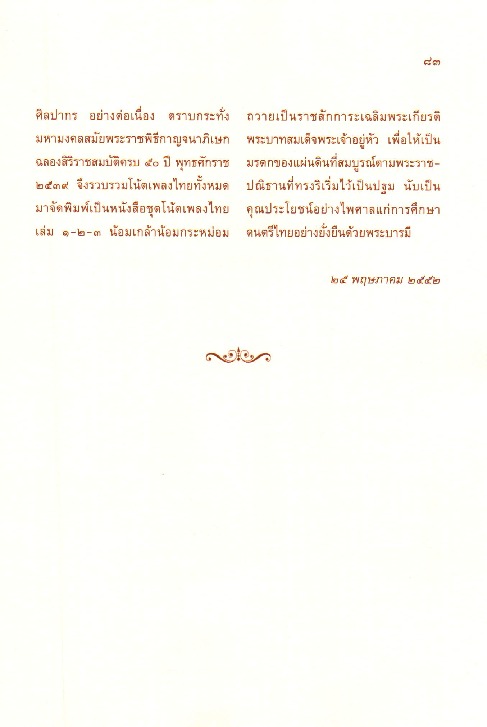 ๘๓
ศิลปากร อย่างต่อเนื่อง ตราบกระทั่ง
มหามงคลสมัยพระราชพิธีกาญจนาภิเษก
ฉลองสิริราชสมบัติครบ ๕๐ ปี พุทธศักราช
๒๕๓๙ จึงรวบรวมโน้ตเพลงไทยทั้งหมด
มาจัดพิมพ์เป็นหนังสือชุดโน้ตเพลงไทย
เล่ม ๑-๒-๓ น้อมเกล้าน้อมกระหม่อม
ถวายเป็นราชสักการะเฉลิมพระเกียรติ
พระบาทสมเด็จพระเจ้าอยู่หัว เพื่อให้เป็น
มรดกของแผ่นดินที่สมบูรณ์ตามพระราช-
ปณิธานที่ทรงริเริ่มไว้เป็นปฐม นับเป็น
คุณประโยชน์อย่างไพศาลแก่การศึกษา
ดนตรีไทยอย่างยั่งยืนด้วยพระบารมี
๒๕ พฤษภาคม ๒๕๕๒